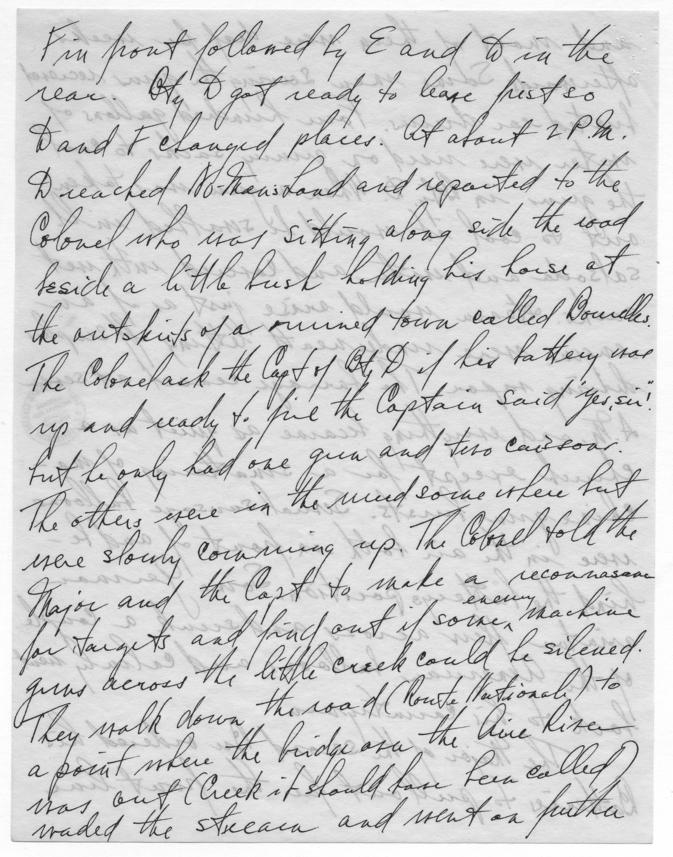 F in front followed by E and D in the
rear. Bty D got ready to leave first so
D and F changed places. At about 2 P.M.
D reached No-Mans-Land and reported to the
Colonel who was sitting along side the road
beside a little bush holding his horse at
the outskirts of a ruined town called
The Colonel ask the Capt of Bty D if his battery was
up and ready to fire the Captain said "yes, sir"!
but he only had one gun and two caissons.
The others were in the mud somewhere but
were slowly comming up. The Colonel told the
Major and the Capt to make a reconnasance
for targets and find out if some enemy machine
guns across the little creek could be silenced.
They walk down the road (Route Nationale) to
a point where the bridge over the Aire River
was out (Creek it should have been called)
waded the stream and went on further